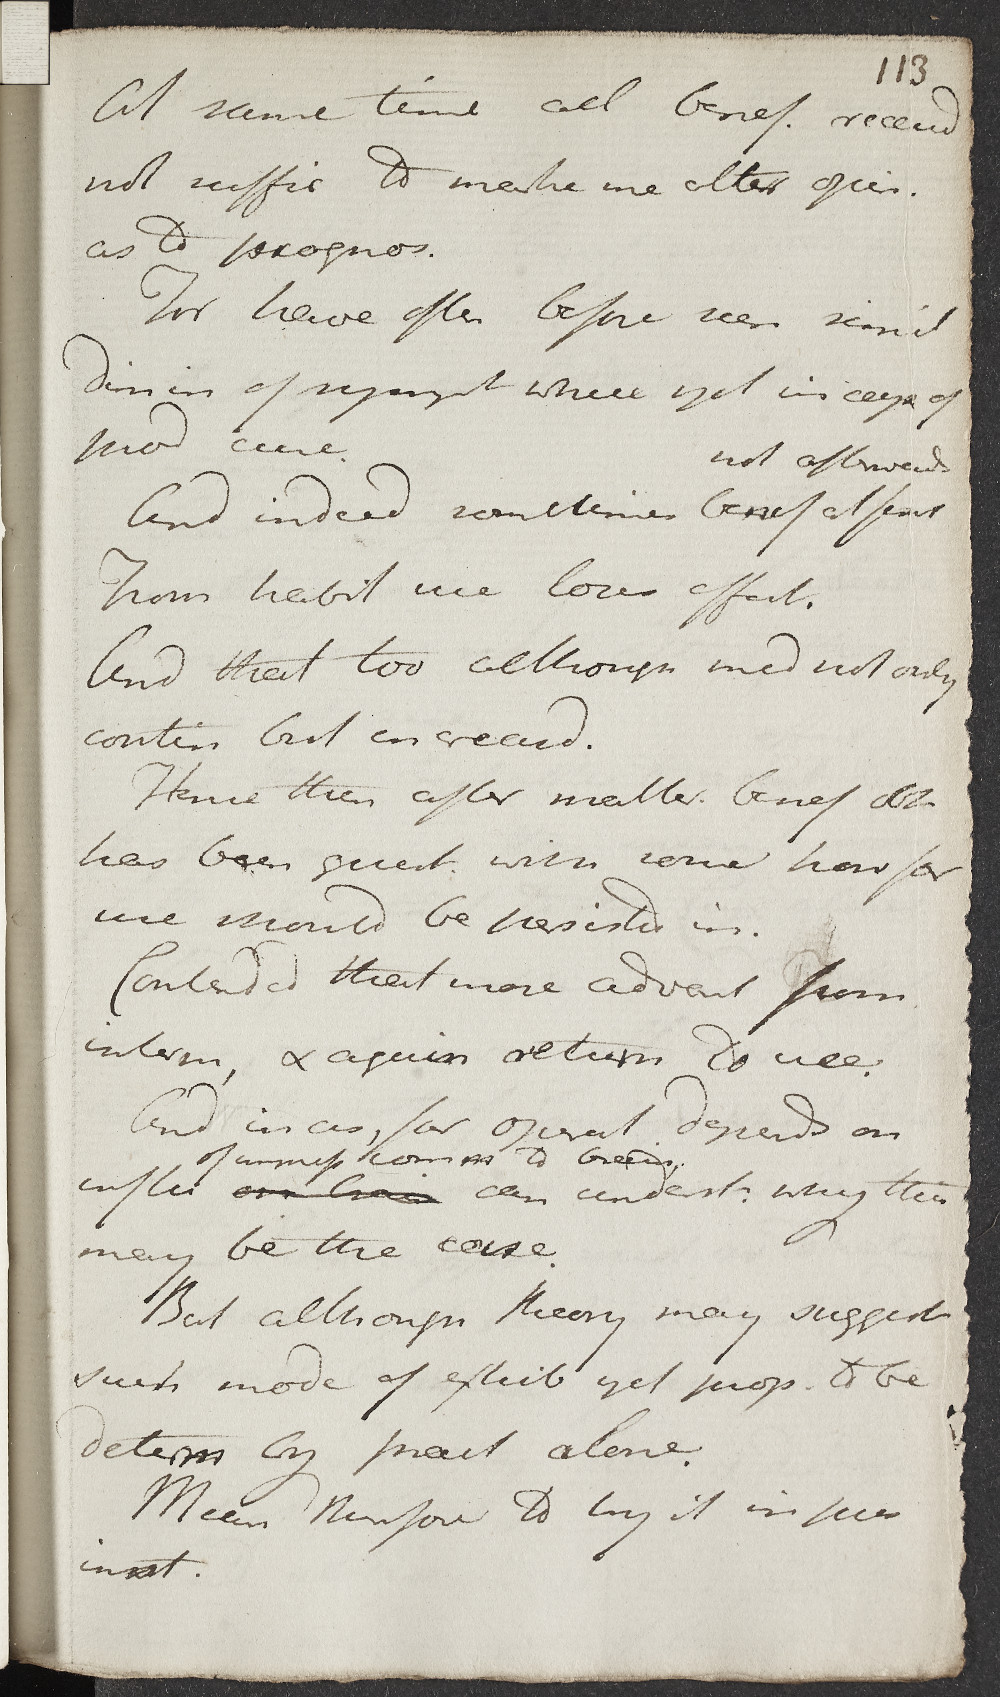 113
At same time all benef. receivd
not suffic to make me alter opin.
as to prognos.
For have often before seen simil
dimin of sympt where yet in case of
prod cure.
not afterwards
And indeed sometimes benef at first
From habit use loses effect.
And that too although med not only
contin but increasd.
Hence then after matter. benef
has been quest. with some how far
use should be persisted in.
Contended that more advant from
interm, & again return to use.
And in as, far operat depends on
of impress commn to brain,
influ on brain can underst. why this
may be the case.
But although theory may suggest
such mode of exhib yet prop. to be
determ by pract alone.
Mean therefore to try it in pres
inst.